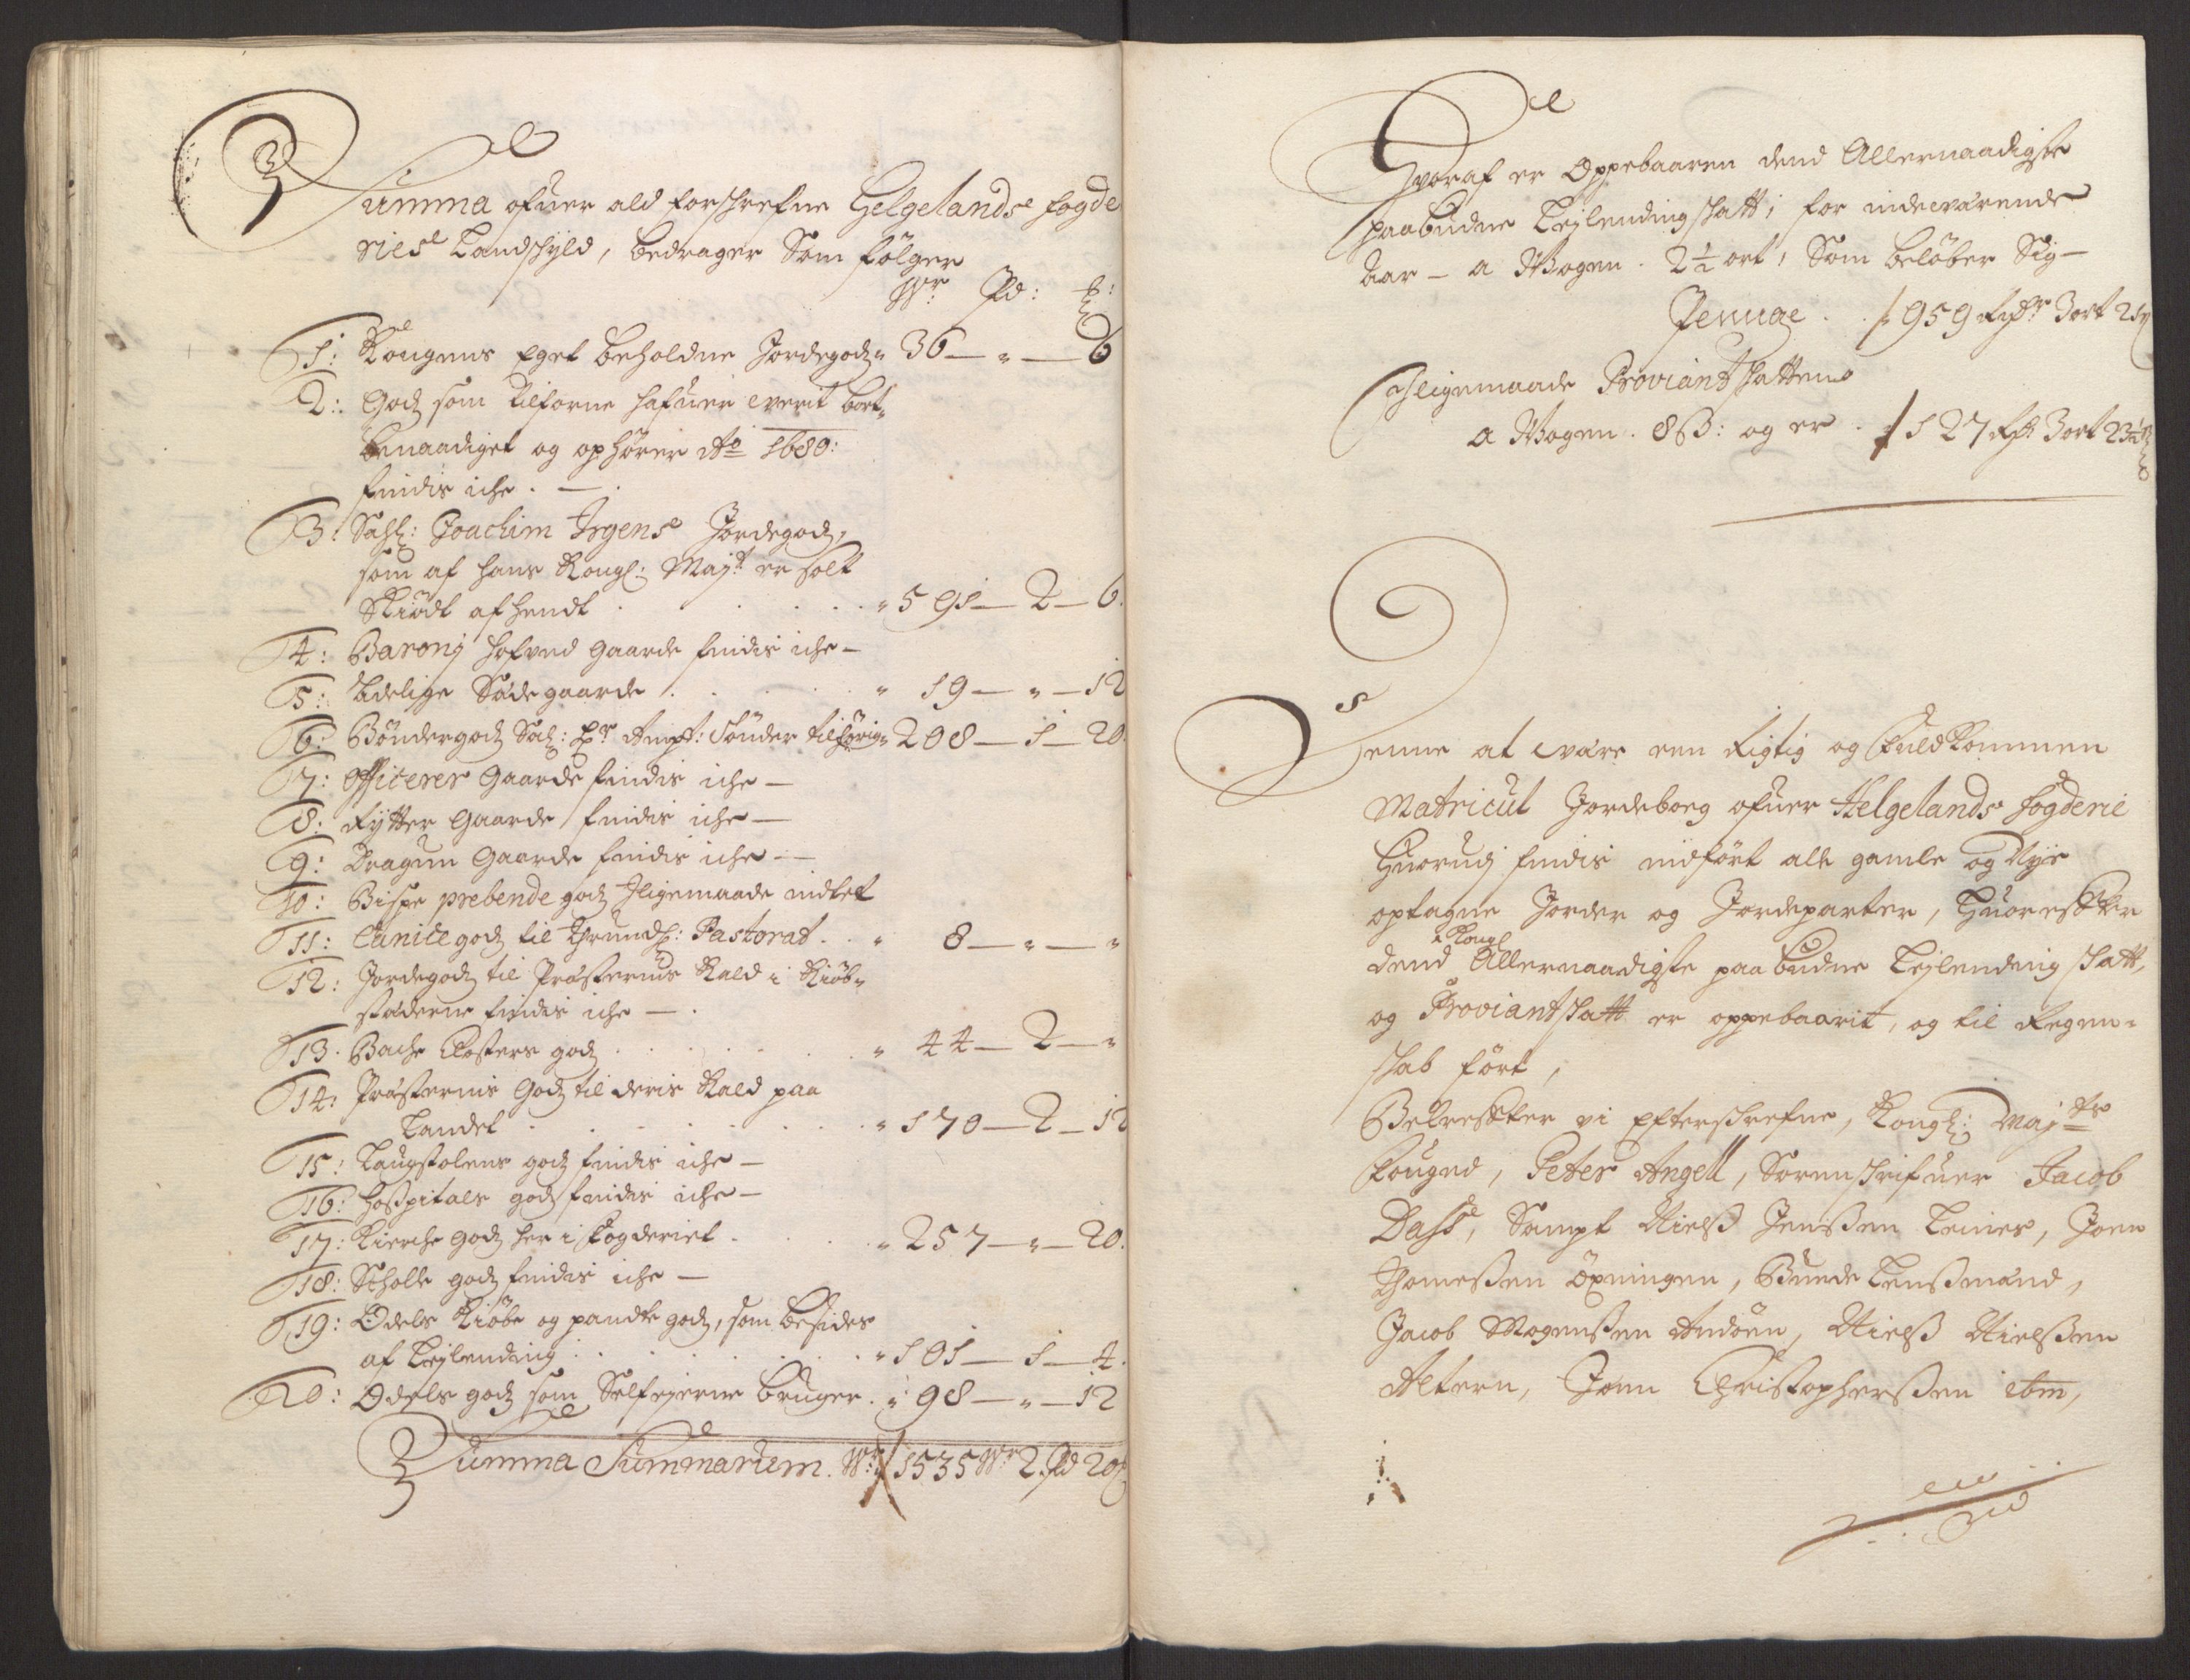 Summa ofuer ald forschrefne Helgelands fogde
ries Landschyld, bedrager Som følger
Wr: Pd: :
1: Kongens Eget beholdne Jordegodz " 36 — " — 6
2: Godz som tilforne hafuer werit bort-
benaadiget og ophører Ao 1680:
findis iche . — .
3: Sahl: Joachim Irgens Jordegodz,
som af hans Kongl: Mayt: er solt
Skiødt afhendt . . . . . " 591 — 2 — 6.
4: Barony hofved gaarde findis iche —
5: Adelige Sædegaarde . . . . " 19 — " — 12
6: Bøndergodz Sal: Hr Ampt: Sønder tilhørig " 208 — 1 — 20.
7: Officerer Gaarde findis iche —
8: Rytter Gaarde findis iche —
9: Dragun Gaarde findis iche —
10: Bispe prebende godz iligemaade intet
11: Canicke godz til Thrundh: Pastorat . . " 8 — " — "
12: Jordegodz til Præsternis Kald i Kiøb-
stæderne findis iche — .
13. Bache Closters godz . . . . . " 44 — 2 — "
14: Præsternis Godz til deris Kald paa
Landet . . . . . . . " 170 — 2 — 12
15: Laugstolens godz findis iche —
16: Hospitals godz findis iche —
17: Kierche godz her i fogderiet . . . " 257 — " — 20.
18: Scholle godz findis iche —
19: Odels Kiøbe og pandte godz, som besides
af Leylending . . . . . . . " 101 — 1 — 4.
20: Odels godz som Selfeyerne bruger . " 98 — " — 12
Summa Summarum. Wr: 1535 Wr 2 Pd 20
Hvoraf er Oppebaaren dend Allernaadigste
paabudne Leylending schatt; for indewærende
Aar — a Wogen . 2½ ort, Som beløber Sig —
Penge . . 959 Rdr 3 ort 21
Iligemaade Proviant schatten
a Wogen . 8 ß: og er . 127 Rdr 3 ort 23
Denne at wære een Rigtig og fuldkommen
Matricul Jordebog ofuer Helgelands fogderie
Huorudj findis indført alle gamle og Nye
optagne Jorder og Jordeparter, Huorefter
dend Kongl Allernaadigste paabudne Leylending schatt,
og Proviantschatt er oppebaarit, og til Regen-
schab ført,
Bekrefter vi Efterschrefne, Kongl: Mayts
fouged, Peter Angell, Sorenschrifuer Jacob
Dass, Sampt Nielß Jenßen Leines, Joen
Thomeßen Øxningen, Bunde Lenßmænd,
Jacob Mogenßen Andøen, Nielß Nielßen
Altern, Joen Christopherßen ibm,